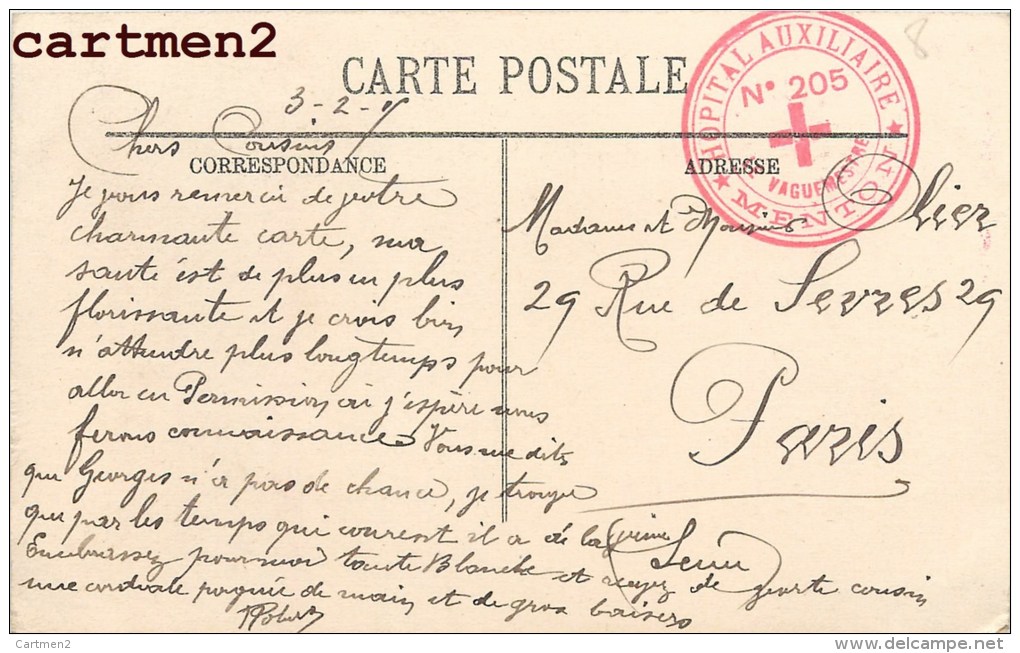 cartmen2
CARTE POSTALE
HOPITAL AUXILIAIRE
N° 205
VAGUEMESTRE
MENTON
3-2-
Chers Cousins
CORRESPONDANCE
ADRESSE
Je vous remercie de votre
charmante carte, ma
santé est de plus en plus
florissante et je crois bien
n'attendre plus longtemps pour
aller en Permission où j'espère nous
ferons connaissance. Vous me dites
que Georges n'a pas de chance, je trouve
que par les temps qui courent il a de la
Embrassez pour moi tante Blanche et recevez de votre cousin
une cordiale poignée de main et de gros baisers
Robert
Madame et Monsieur
29 Rue de Sevres 29
Paris
Seine
Cartmen2
www.delcampe.net